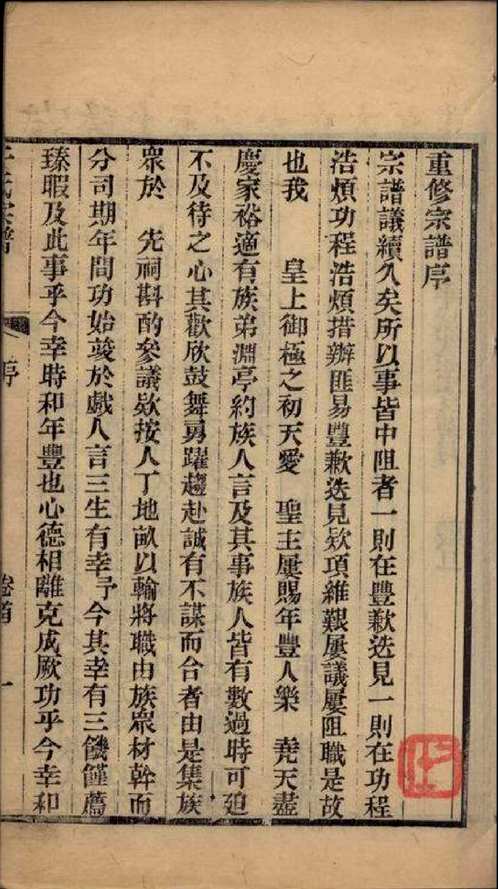 重修宗譜序
宗譜議續久矣所以事皆中阻者一則在豐歉迭見一則在功程
浩煩功程浩煩措辦匪易豐歉迭見欵項維艱屢議屢阻職是故
也我　皇上御極之初天愛　聖主屢賜年豐人樂　堯天盡
慶家裕適有族弟淵亭約族人言及其事族人皆有數過時可迫
不及待之心其歡欣鼓舞勇躍趨赴誠有不謀而合者由是集族
眾於　先祠斟酌參議欵按人丁地畝以輸將職由族眾材幹而
分司期年間功始竣於戲人言三生有幸予今其幸有三饑饉薦
臻暇及此事乎今幸時和年豐也心德相離克成厥功乎今幸和
氏宗譜　序　卷首　一